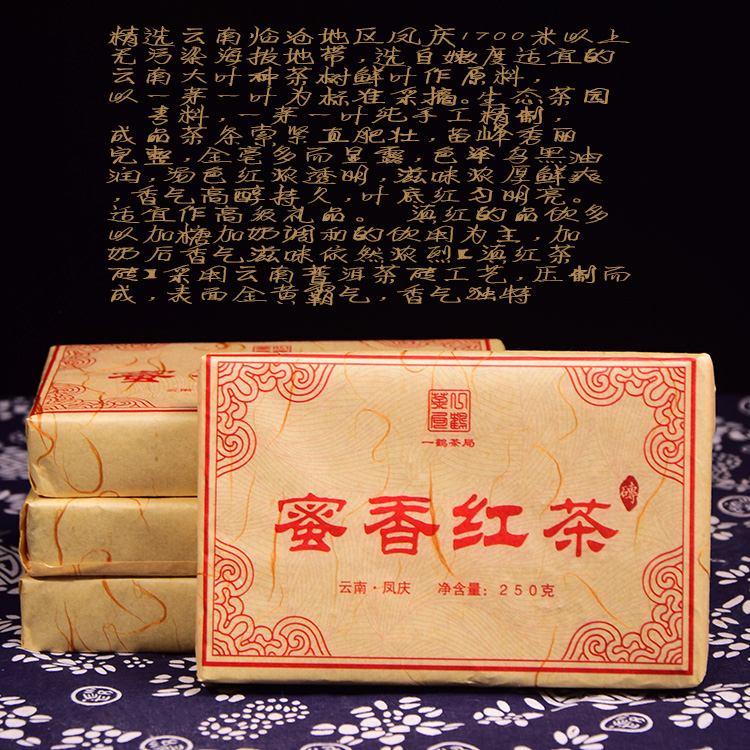 精选云南临沧地区凤庆1700米以上
无污染海拔地带，选自嫩度适宜的
云南大叶种茶树鲜叶作原料，
以一芽一叶为标准采摘。生态茶园
青料，一芽一叶纯手工精制，
成品茶条索紧直肥壮，苗峰秀丽
完整，金毫多而显露，色泽乌黑油
润，汤色红浓透明，滋味浓厚鲜爽
，香气高醇持久，叶底红匀明亮。
适宜作高级礼品。 滇红的品饮多
以加糖加奶调和的饮用为主，加
奶后香气滋味依然浓烈【滇红茶
砖】采用云南普洱茶砖工艺，压制而
成，表面金黄霸气，香气独特
一鹤茶局
蜜香红茶
磚
云南·凤庆 净含量：250克
蜜
云南